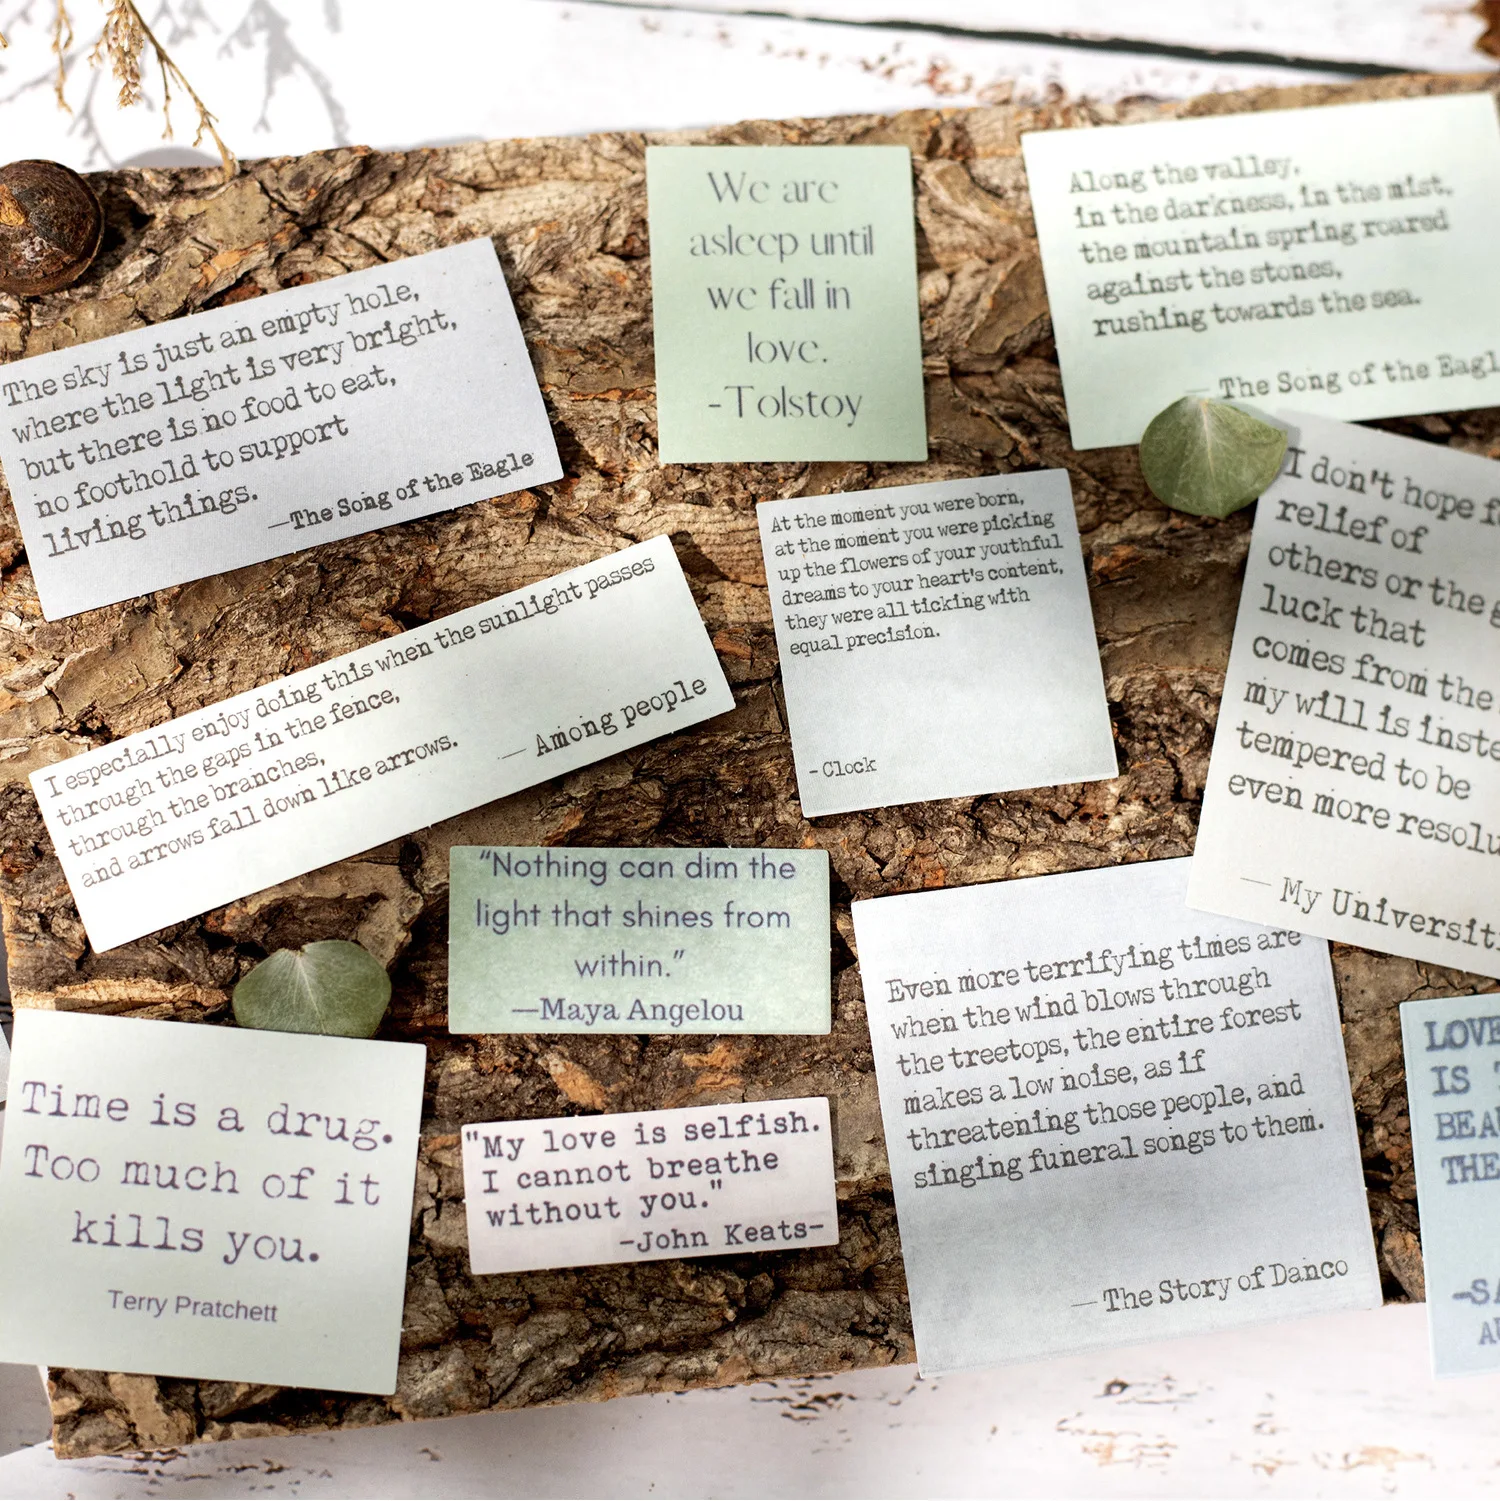 The sky is just an empty hole,
where the light is very bright,
but there is no food to eat,
no foothold to support
living things.
—The Song of the Eagle
We are
asleep until
we fall in
love.
-Tolstoy
Along the valley,
in the darkness, in the mist,
the mountain spring roared
against the stones,
rushing towards the sea.
— The Song of the Eagl
I especially enjoy doing this when the sunlight passes
through the gaps in the fence,
through the branches,
and arrows fall down like arrows.
— Among people
At the moment you were born,
at the moment you were picking
up the flowers of your youthful
dreams to your heart's content,
they were all ticking with
equal precision.
- Clock
I don't hope f
relief of
others or the g
luck that
comes from the
my will is inste
tempered to be
even more resolu
— My Universit
"Nothing can dim the
light that shines from
within."
—Maya Angelou
Time is a drug.
Too much of it
kills you.
Terry Pratchett
"My love is selfish.
I cannot breathe
without you."
-John Keats-
Even more terrifying times are
when the wind blows through
the treetops, the entire forest
makes a low noise, as if
threatening those people, and
singing funeral songs to them.
— The Story of Danco
LOVE
IS
BEA
THE
-SA